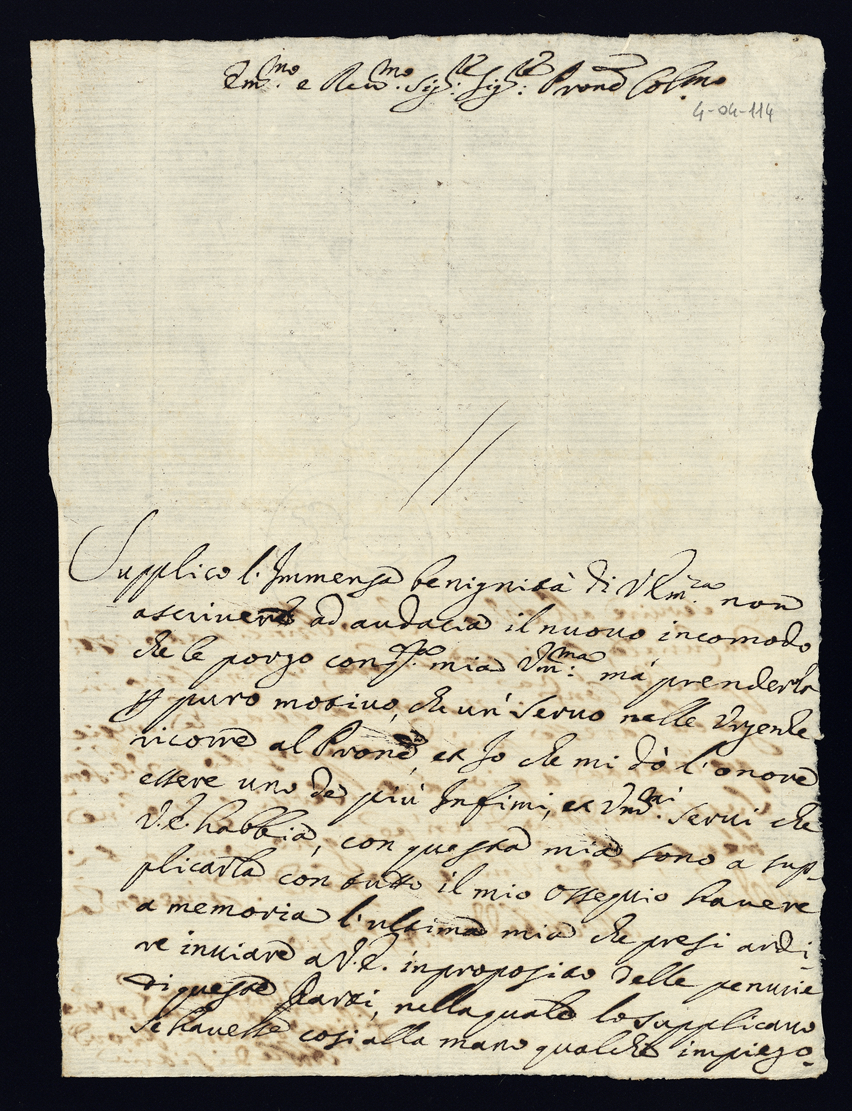 Em.mo e Rev.mo Sig.re Sig.re Pron.e Col.mo
4-04-114
Supplico l'Immensa benignità di V. Em.za non
ascrivere ad audacia il nuovo incomodo
che le porgo con q.ta mia Um.ma ma prenderlo
p puro motivo, che un servo nelle Urgenze
ricorre al Pron.e, et Io che mi dò l'onore
essere uno de più Infimi, et Um.mi servi che
V.E. habbia, con questa mia sono a sup-
plicarla con tutto il mio ossequio havere
a memoria l'ultima mia che presi ardi-
re inviare a V.E. in proposito delle penurie
di queste parti, nella quale lo supplicavo
se havesse così alla mano qualche impiego.